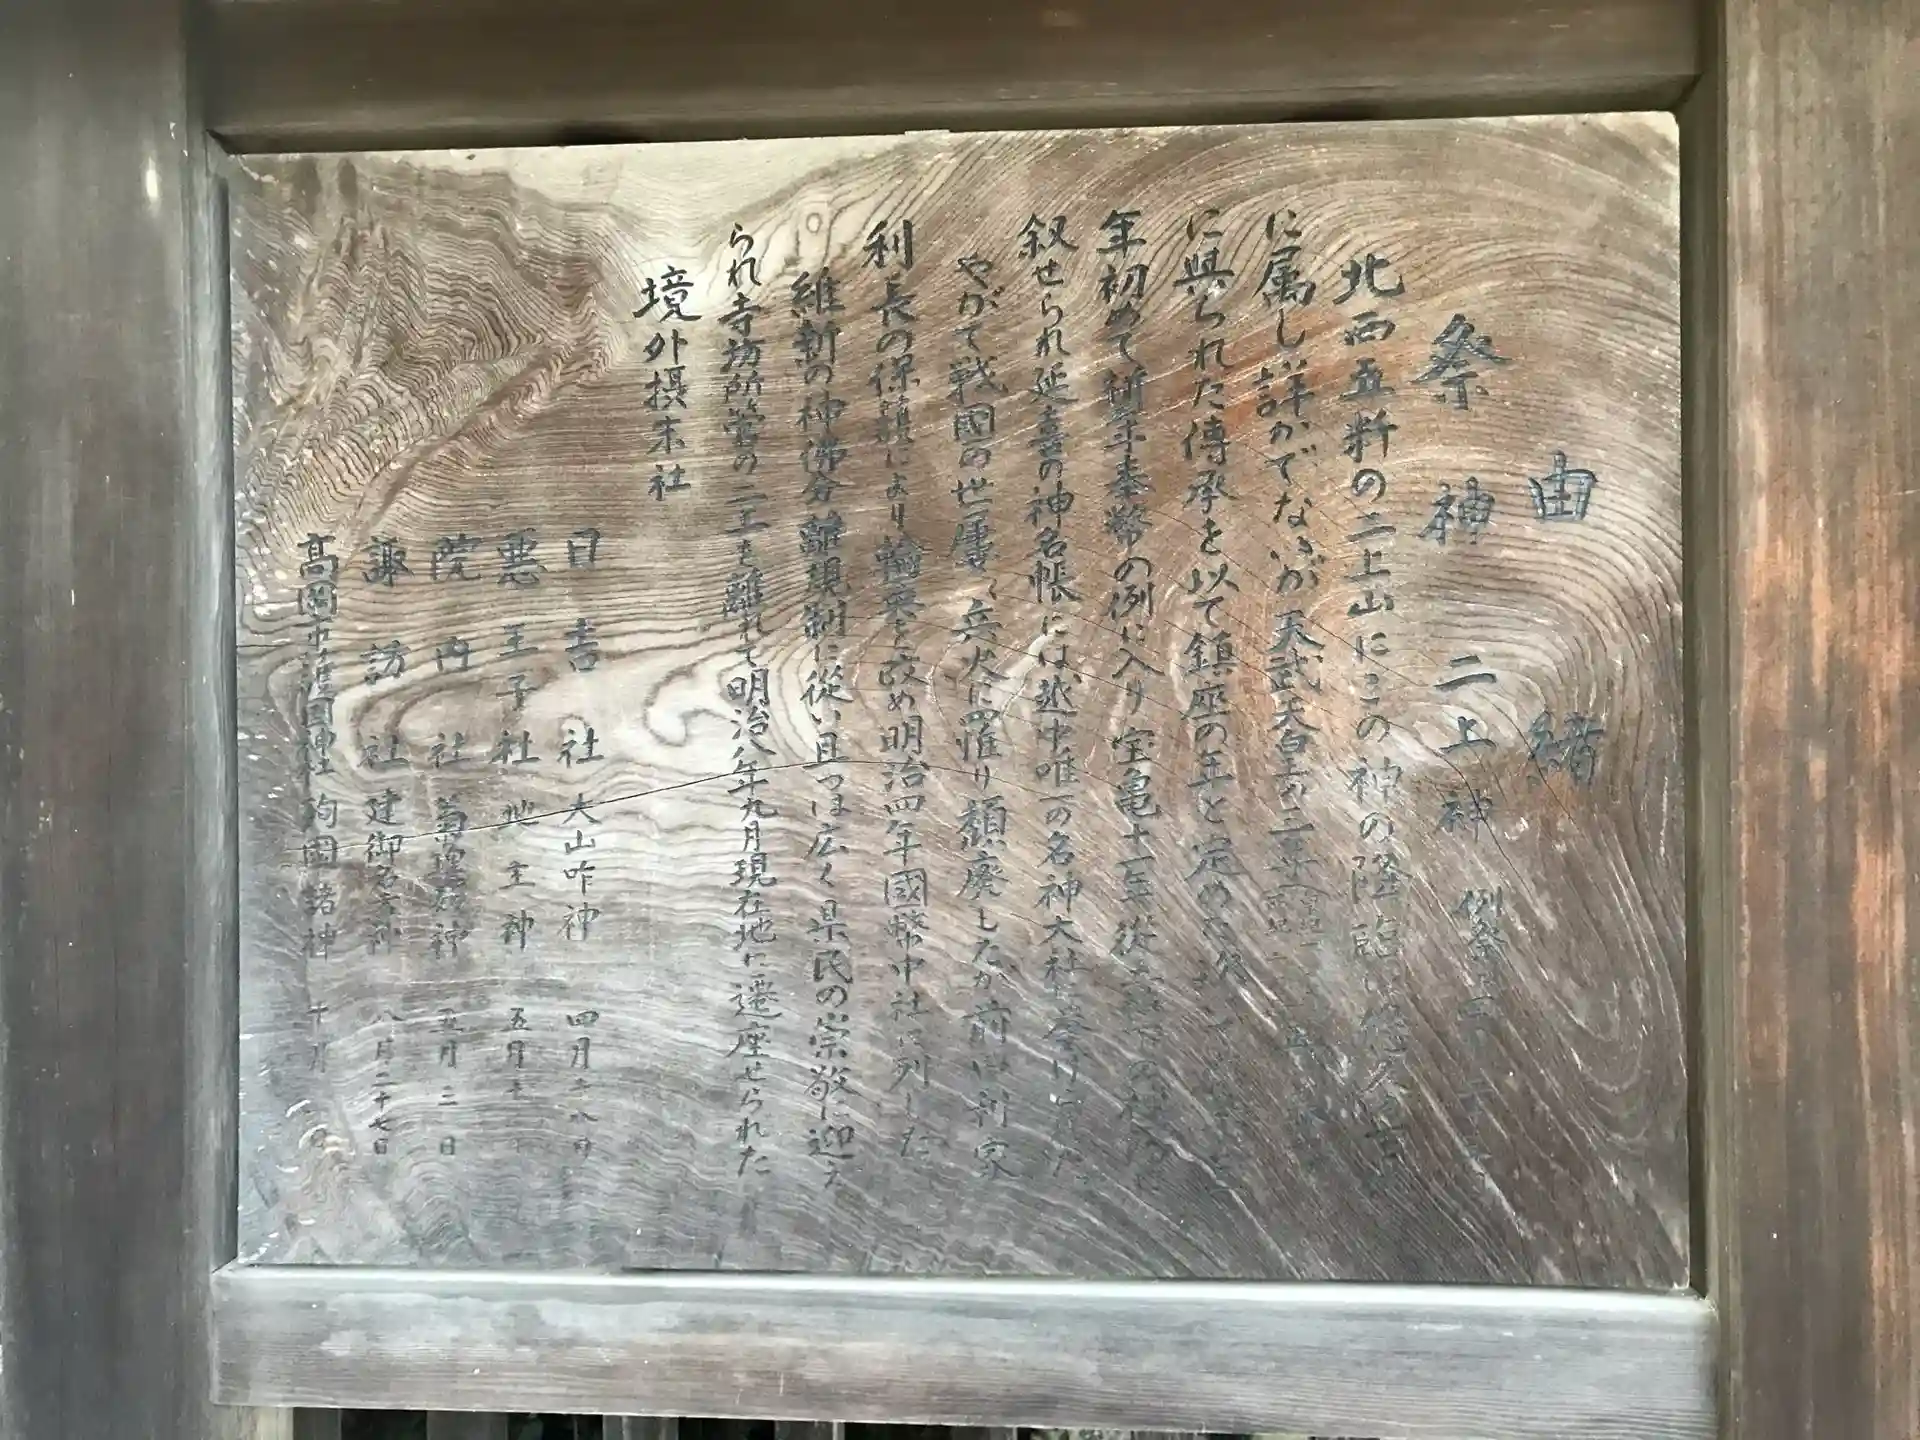 由緒
祭神 二上神 例祭
北西五粁の二上山にこの神の降臨は悠久の古
に属し詳かでないが天武天皇の二年
に與られた傳承を以て鎮座の年と定め
年初めて祈年奉幣の例に入り宝亀十一年従
叙せられ延喜の神名帳には越中唯一の名神大社
やがて戦國の世屡々兵火に罹り頽廃したが前田利家
利長の保護により輪奐を改め明治四年國幣中社に列した
維新の神佛分離規制に從い且つは広く県民の崇敬に迎え
られ寺坊所管の二上を離れて明治八年九月現在地に遷座せられた
境外摂末社
日吉社 大山咋神 四月十八日
悪王子社 地主神 五月
院内社 菊理姫神 五月三日
諏訪社 建御名方神 八月二十七日
高岡市護國神社 殉国諸神 十月